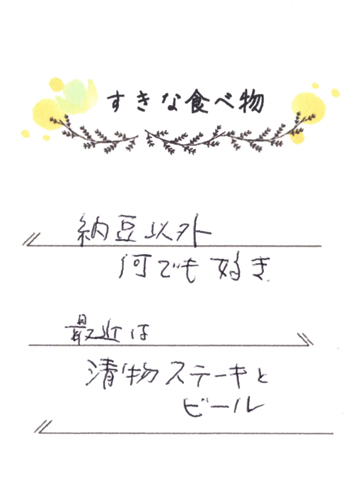 すきな食べ物
納豆以外
何でも好き
最近は
漬物ステーキと
ビール